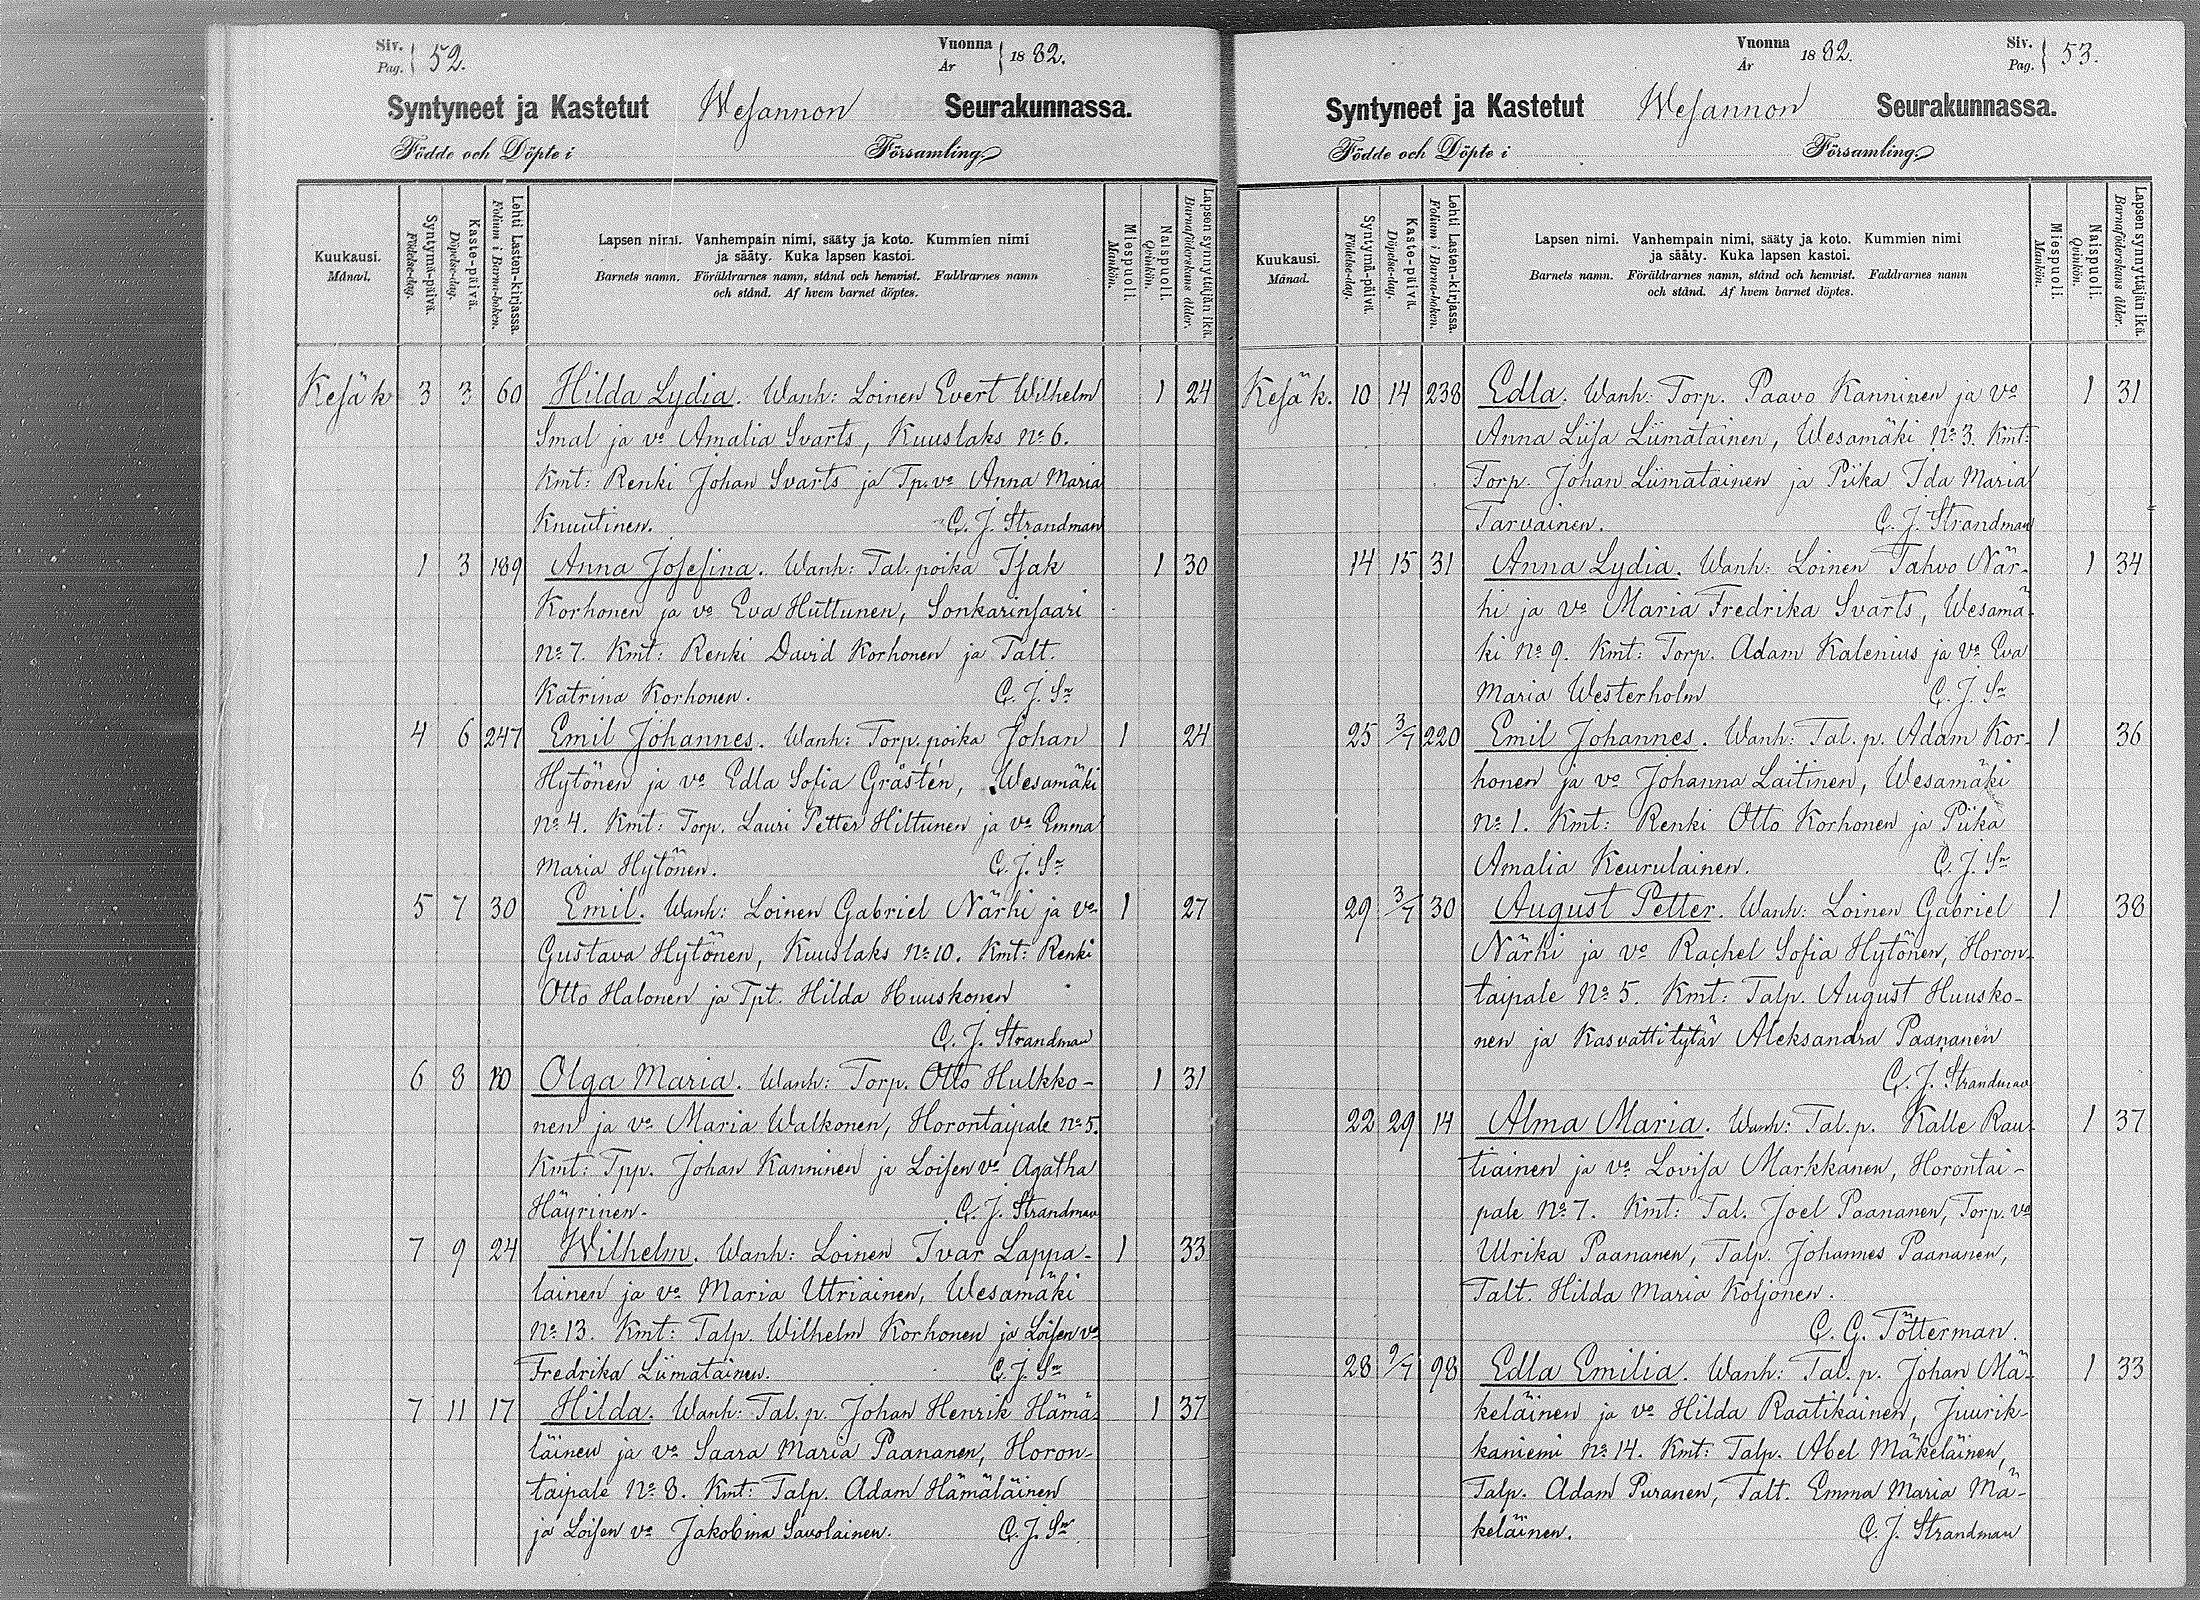 Siv.
Pag. 52.
Vuonna
År 1882.
Syntyneet ja Kastetut Wesannon Seurakunnassa.
Födde och Döpte i Församling.
Kuukausi.
Månad.
Syntymä-päivä.
Födelse-dag.
Kaste-päivä.
Döpelse-dag.
Lehti Lasten-kirjassa.
Folium i Barna-boken.
Lapsen nimi. Vanhempain nimi, sääty ja koto. Kummien nimi
ja sääty. Kuka lapsen kastoi.
Barnets namn. Föräldrarnes namn, stånd och hemvist. Faddrarnes namn
och stånd. Af hvem barnet döptes.
Miespuoli.
Mankön.
Naispuoli.
Qvinkön.
Lapsen synnyttäjän ikä.
Barnaföderskans ålder.
Kesäk 3 3 60 Hilda Lydia. Wanh: Loinen Evert Wilhelm 1 24
Smal ja vo Amalia Svarts, Kuuslaks No 6.
Kmt: Renki Johan Svarts ja Tp. vo Anna Maria
Knuutinen. C. J. Strandman
1 3 189 Anna Josefina. Wanh: Tal. poika Isak 1 30
Korhonen ja vo Eva Huttunen, Sonkarinsaari
No 7. Kmt: Renki David Korhonen ja Talt.
Katrina Korhonen. C. J. Sn
4 6 247 Emil Johannes. Wanh: Torp. poika Johan 1 24
Hytönen ja vo Edla Sofia Grästén, Wesamäki
No 4. Kmt: Torp. Lauri Petter Hiltunen ja vo Emma
Maria Hytönen. C. J. Sn
5 7 30 Emil. Wanh: Loinen Gabriel Närhi ja vo 1 27
Gustava Hytönen, Kuuslaks No 10. Kmt: Renki
Otto Halonen ja Tpt. Hilda Huuskonen
C. J. Strandman
6 8 10 Olga Maria. Wanh: Torp. Otto Hulkko- 1 31
nen ja vo Maria Walkonen, Horontaipale No 5.
Kmt: Tpp. Johan Kanninen ja Loisen vo Agatha
Häyrinen. C. J. Strandman
7 9 24 Wilhelm. Wanh: Loinen Ivar Lappa- 1 33
lainen ja vo Maria Utriainen, Wesamäki
No 13. Kmt: Talp. Wilhelm Korhonen ja Loisen vo
Fredrika Liimatainen. C. J. Sn
7 11 17 Hilda. Wanh: Tal. p. Johan Henrik Hämä- 1 37
läinen ja vo Saara Maria Paananen, Horon-
taipale No 8. Kmt: Talp. Adam Hämäläinen
ja Loisen vo Jakobina Savolainen. C. J. Sn
Vuonna
År 1882.
Siv.
Pag. 53.
Syntyneet ja Kastetut Wesannon Seurakunnassa.
Födde och Döpte i Församling.
Kuukausi.
Månad.
Syntymä-päivä.
Födelse-dag.
Kaste-päivä.
Döpelse-dag.
Lehti Lasten-kirjassa.
Folium i Barna-boken.
Lapsen nimi. Vanhempain nimi, sääty ja koto. Kummien nimi
ja sääty. Kuka lapsen kastoi.
Barnets namn. Föräldrarnes namn, stånd och hemvist. Faddrarnes namn
och stånd. Af hvem barnet döptes.
Miespuoli.
Mankön.
Naispuoli.
Qvinkön.
Lapsen synnyttäjän ikä.
Barnaföderskans ålder.
Kesäk. 10 14 238 Edla. Wanh: Torp. Paavo Kanninen ja vo 1 31
Anna Liisa Liimatainen, Wesamäki No 3. Kmt:
Torp. Johan Liimatainen ja Piika Ida Maria
Tarvainen. C. J. Strandman
14 15 31 Anna Lydia. Wanh: Loinen Tahvo När- 1 34
hi ja vo Maria Fredrika Svarts, Wesamä-
ki No 9. Kmt: Torp. Adam Kalenius ja vo Eva
Maria Westerholm C. J. Sn
25 3/7 220 Emil Johannes. Wanh: Tal. p. Adam Kor- 1 36
honen ja vo Johanna Laitinen, Wesamäki
No 1. Kmt: Renki Otto Korhonen ja Piika
Amalia Keurulainen. C. J. Sn
29 3/7 30 August Petter. Wanh: Loinen Gabriel 1 38
Närhi ja vo Rachel Sofia Hytönen, Horon-
taipale No 5. Kmt: Talp. August Huusko-
nen ja Kasvattitytär Aleksandra Paananen
C. J. Strandman
22 29 14 Alma Maria. Wanh: Tal. p. Kalle Rau- 1 37
tiainen ja vo Lovisa Markkanen, Horontai-
pale No 7. Kmt: Tal. Joel Paananen, Torp. vo
Ulrika Paananen, Talp. Johannes Paananen,
Talt. Hilda Maria Koljonen.
C. G. Tötterman.
28 9/7 98 Edla Emilia. Wanh: Tal. p. Johan Mä- 1 33
keläinen ja vo Hilda Raatikainen, Juurik-
kaniemi No 14. Kmt: Talp. Abel Mäkeläinen,
Talp. Adam Puranen, Talt. Emma Maria Mä-
keläinen. C. J. Strandman